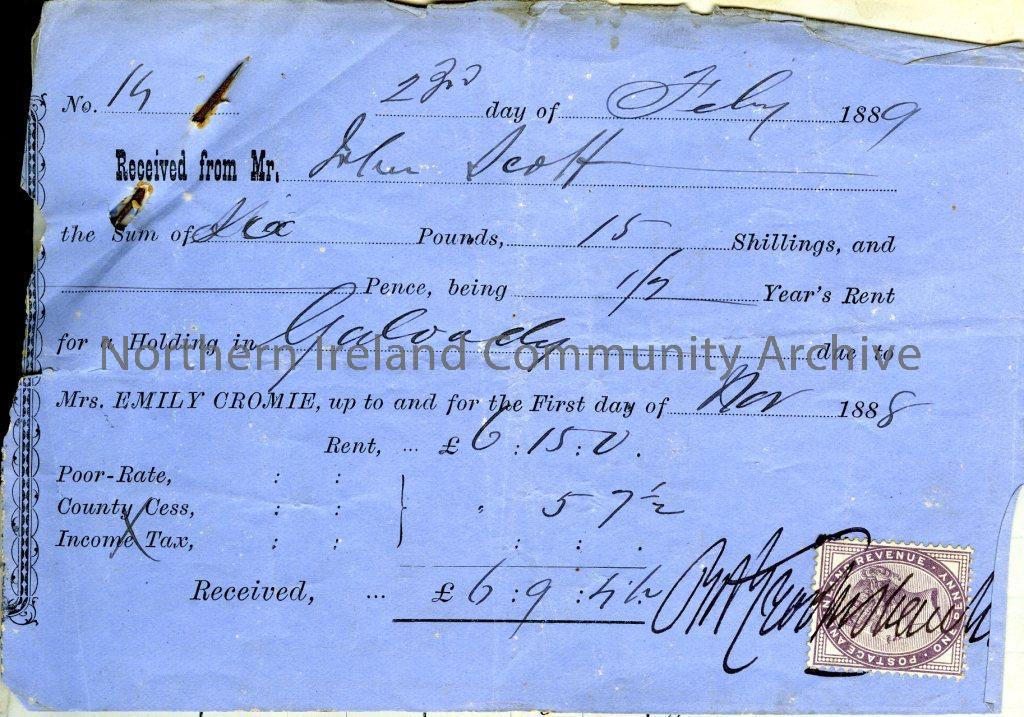 No. 14 23rd day of Feby 1889
Received from Mr. John Scott
the Sum of Six Pounds, 15 Shillings, and
Pence, being 1/2 Year's Rent
for a Holding in Galvally due to
Northern Ireland Community Archive
Mrs. EMILY CROMIE, up to and for the First day of Nov 1888
Rent, ... £ 6 : 15 : 0.
Poor-Rate, : :
County Cess, : : " 5 7½
Income Tax, : : : : .
Received, ... £ 6 : 9 : 4½
POSTAGE AND INLAND REVENUE · ONE PENNY ·